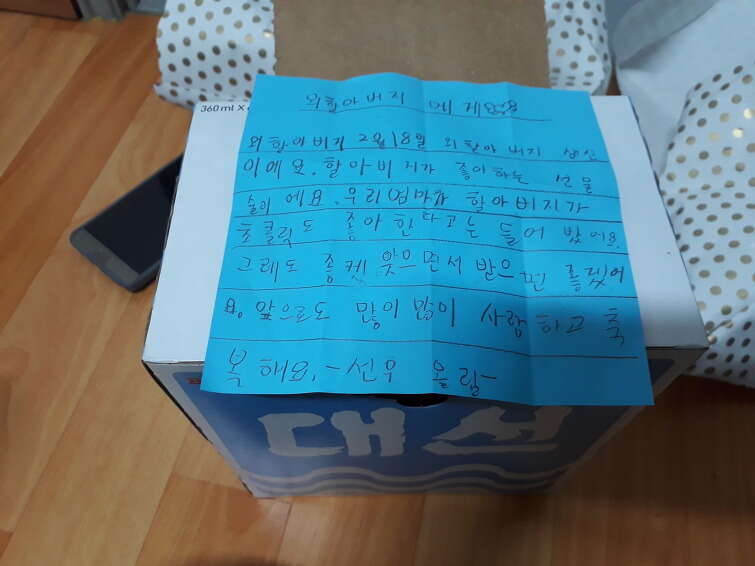 360ml X
외할아버지 에게
외할아버지 2월18일 외할아버지 생신
이예요. 할아버지가 좋아하는 선물
술이에요. 우리엄마가 할아버지가
초콜릭도 좋아한다고는 들어봤어요.
그래도 좋켔 웃으면서 받으면 좋겠어
요. 앞으로도 많이많이 사랑하고 축
복해요. -선우 올림-
대선